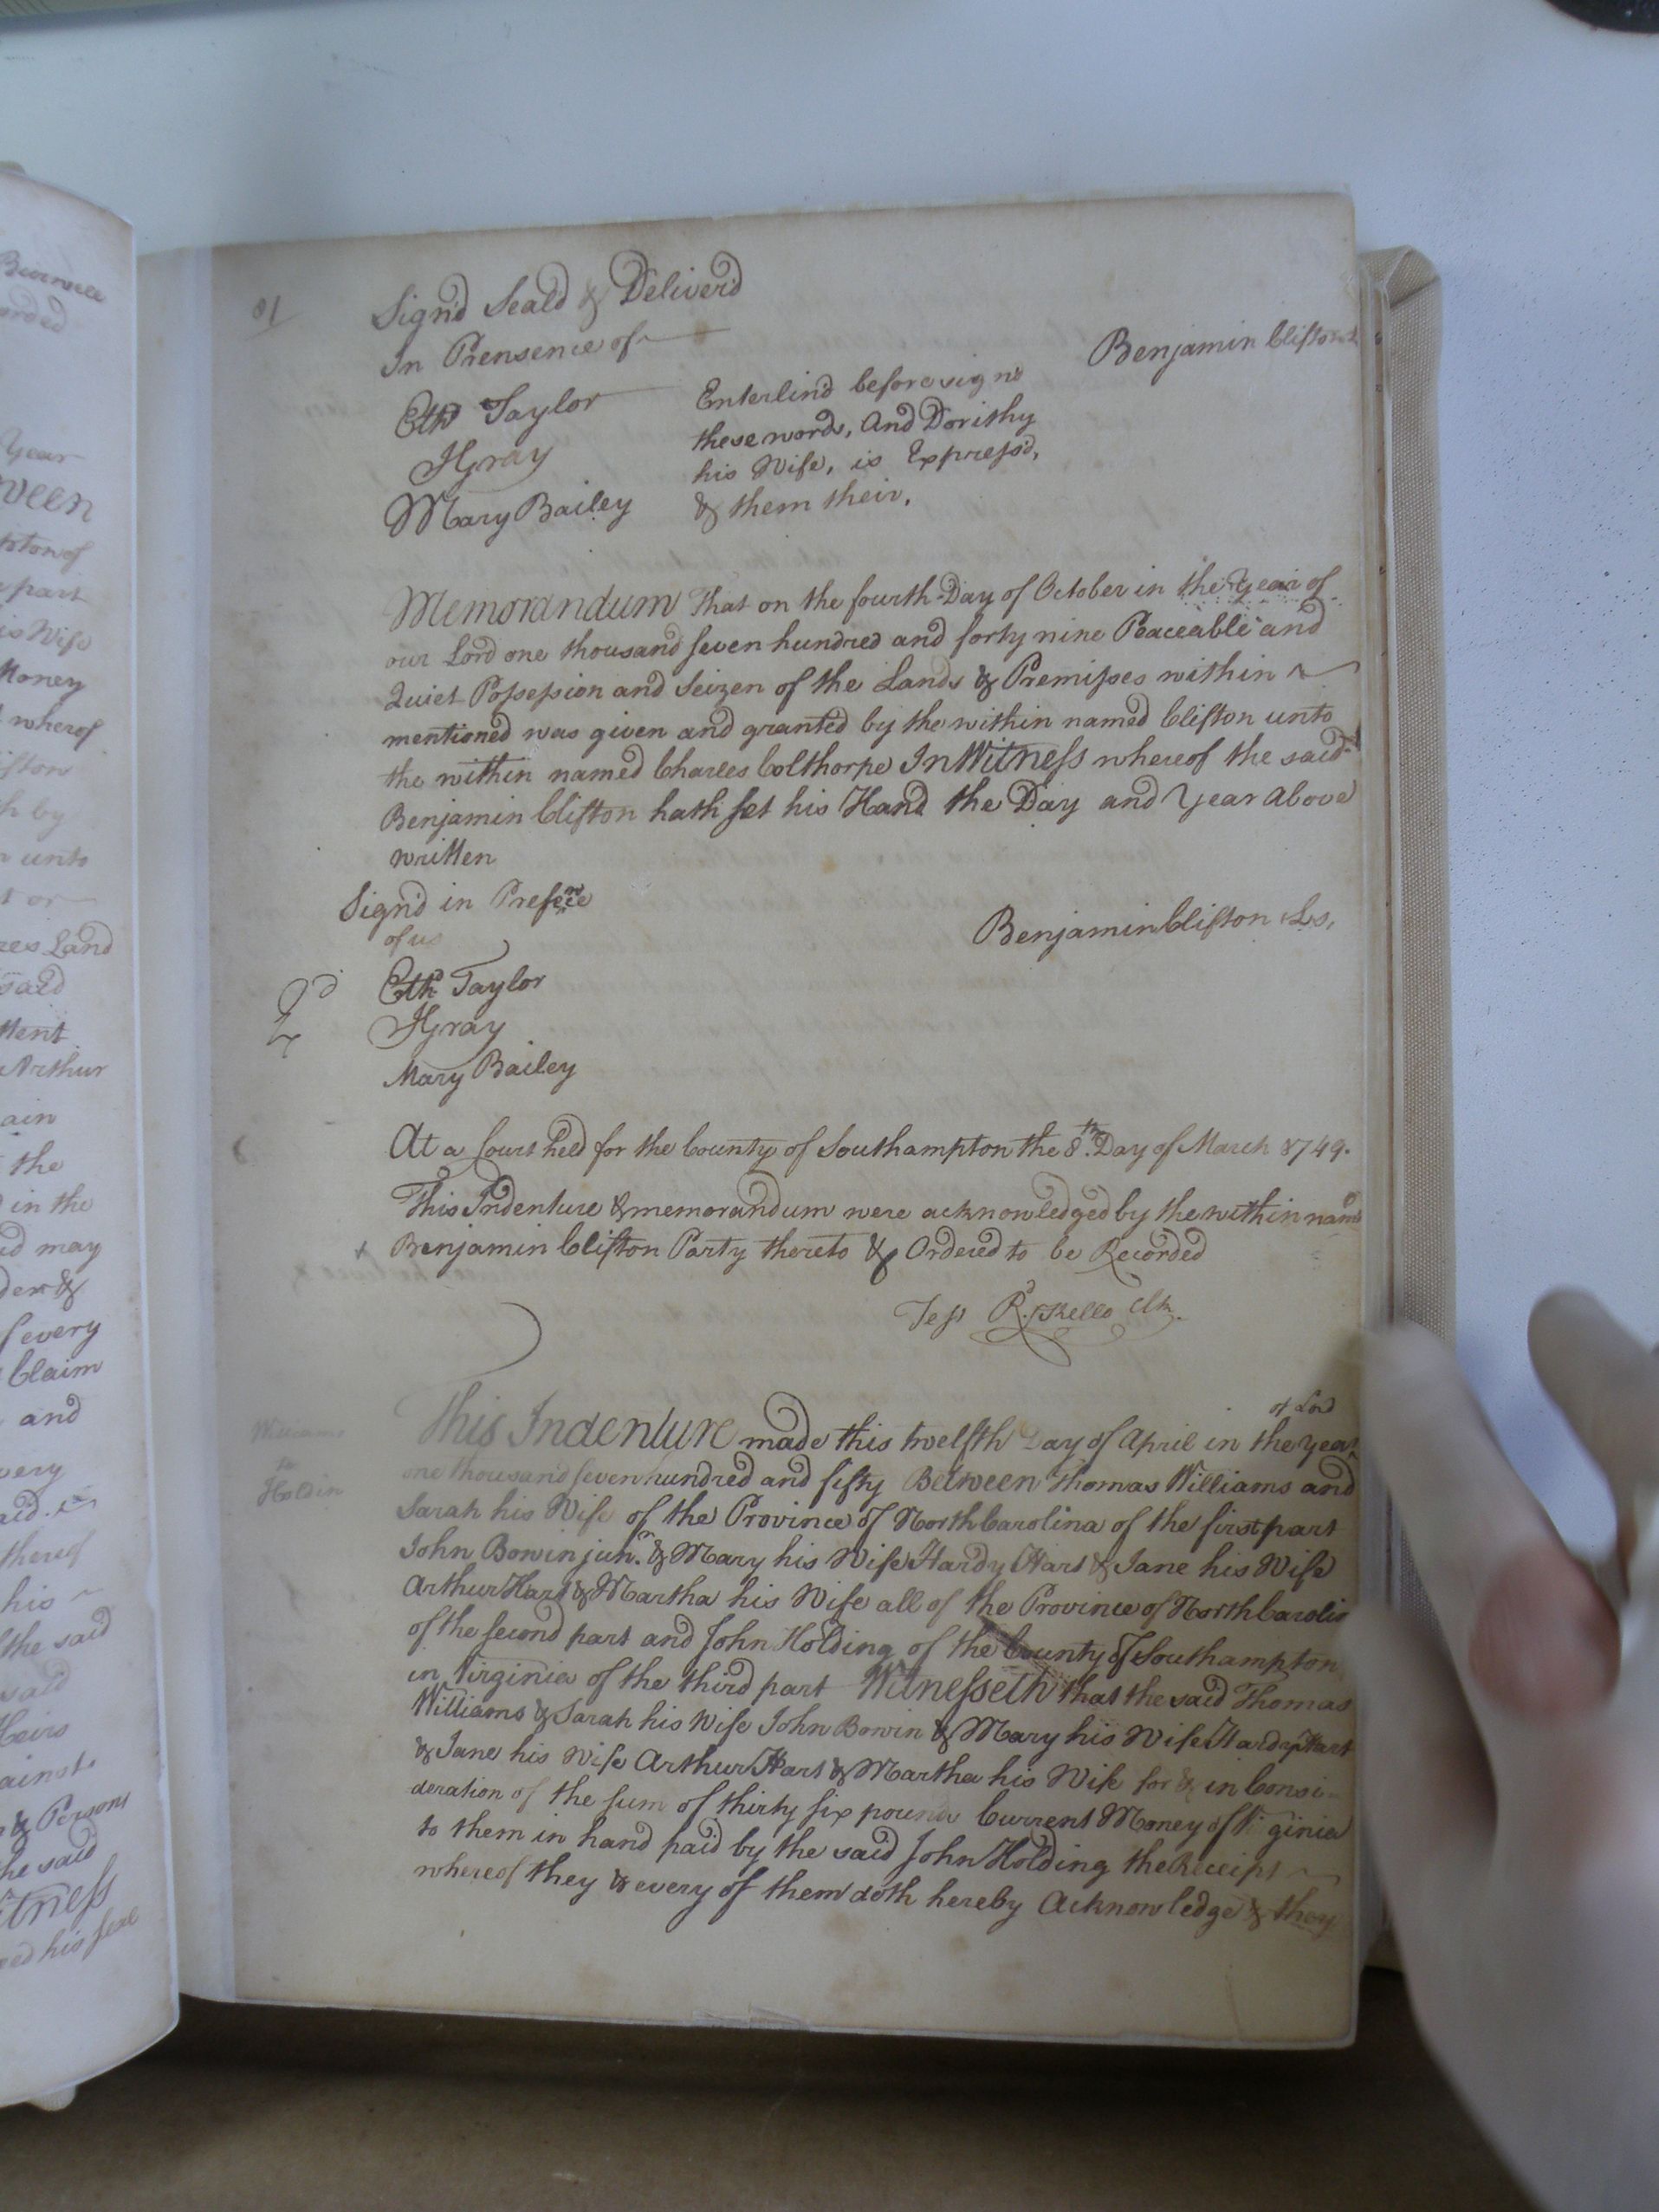 81
Sign'd Seal'd & Deliver'd
In Prensence of
Benjamin Clifton Ls
Eth'd Taylor
JGray
Mary Bailey
Enterlin'd before sign'd
these words, And Dorithy
his Wife, is Express'd,
& them their,
Memorandum That on the fourth Day of October in the Year of
our Lord one thousand seven hundred and forty nine Peaceable and
Quiet Possession and Seizen of the Lands & Premisses within
mentioned was given and granted by the within named Clifton unto
the within named Charles Colthorpe In Witness whereof the said
Benjamin Clifton hath set his Hand the Day and Year Above
written
Sign'd in Presence
of us
Benjamin Clifton Ls,
Eth'd Taylor
JGray
Mary Bailey
At a Court held for the County of Southampton the 8th. Day of March 1749.
This Indenture & memorandum were acknowledged by the within nam'd
+ Benjamin Clifton Party thereto & Ordered to be Recorded
Test R'd. Kello Clk.
Williams
to
Holdin
This Indenture made this twelfth Day of April in the Year of Lord
one thousand seven hundred and fifty Between Thomas Williams and
Sarah his Wife of the Province of North Carolina of the first part
John Bowin junr. & Mary his Wife Hardy Hart & Jane his Wife
Arthur Hart & Martha his Wife all of the Province of North Carolin
of the second part and John Holding of the County of Southampton
in Virginia of the third part Witnesseth that the said Thomas
Williams & Sarah his Wife John Bowin & Mary his Wife Hardy Hart
& Jane his Wife Arthur Hart & Martha his Wife for & in Consi-
deration of the sum of thirty six pounds Current Money of Virginia
to them in hand paid by the said John Holding the Receipt
whereof they & every of them doth hereby Acknowledge & they